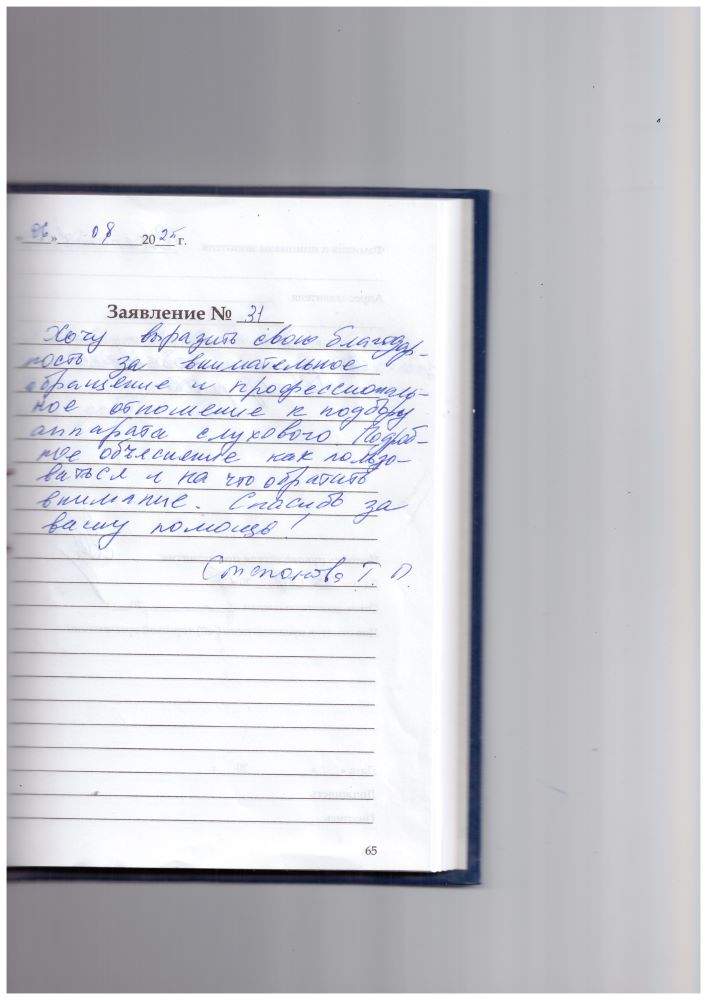 « 06 » 08 2025 г.
Заявление № 31
Хочу выразить свою благодар-
ность за внимательное
обращение и профессиональ-
ное отношение к подбору
аппарата слухового. Подроб-
ное объяснение как пользо-
ваться и на что обратить
внимание. Спасибо за
вашу помощь!
Степанова Т. П.
65